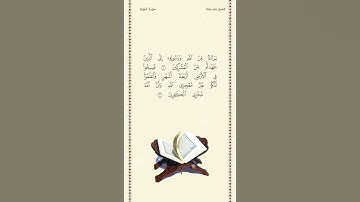 سورة التوبة
بَرَآءَةٌ مِّنَ ٱللَّهِ وَرَسُولِهِۦٓ إِلَى ٱلَّذِينَ
عَٰهَدتُّم مِّنَ ٱلْمُشْرِكِينَ ١ فَسِيحُوا۟
فِى ٱلْأَرْضِ أَرْبَعَةَ أَشْهُرٍ وَٱعْلَمُوٓا۟
أَنَّكُمْ غَيْرُ مُعْجِزِى ٱللَّهِ وَأَنَّ ٱللَّهَ
مُخْزِى ٱلْكَٰفِرِينَ ٢